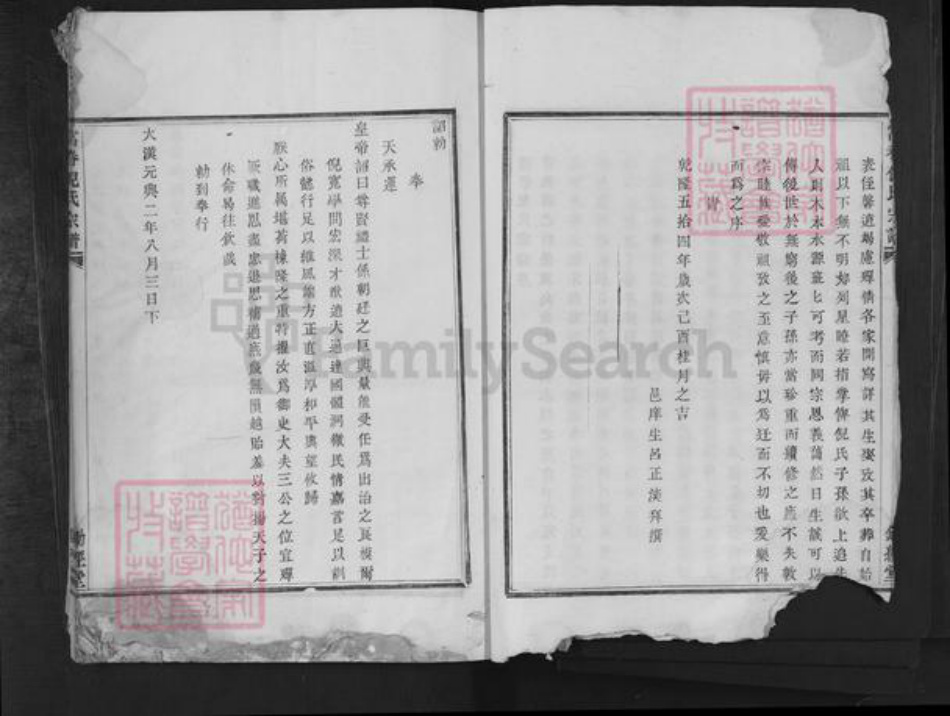 表侄馨遒竭慮殫情各家開寫詳其生歿攷其卒葬自始
祖以下無不明如列星瞭若指掌俾倪氏子孫欲上追先
人則木本水源班班可考而同宗恩義藹然日生誠可以
傳後世於無窮後之子孫亦當珍重而續修之庶不失敦
宗睦族愛敬祖攷之至意慎毋以為迂而不切也爰樂得
而為之序
時
乾隆五拾四年歲次己酉桂月之吉
邑庠生呂正淡拜撰
詔勅
奉
天承運
皇帝詔曰尊賢禮士係朝廷之巨典量能受任為出治之良模爾
倪寬學問宏深才猷遠大通達國體洞徹民情嘉言足以訓
俗健行足以維風端方正直溫厚和平輿望攸歸
朕心所屬堪荷棟隆之重特擢汝為御史大夫三公之位宜殫
厥職進思盡忠退思補過庶幾無隕越貽羞以對揚天子之
休命曷往欽哉
勅到奉行
大漢元興二年八月三日下
倪氏宗譜
經堂
FamilySearch